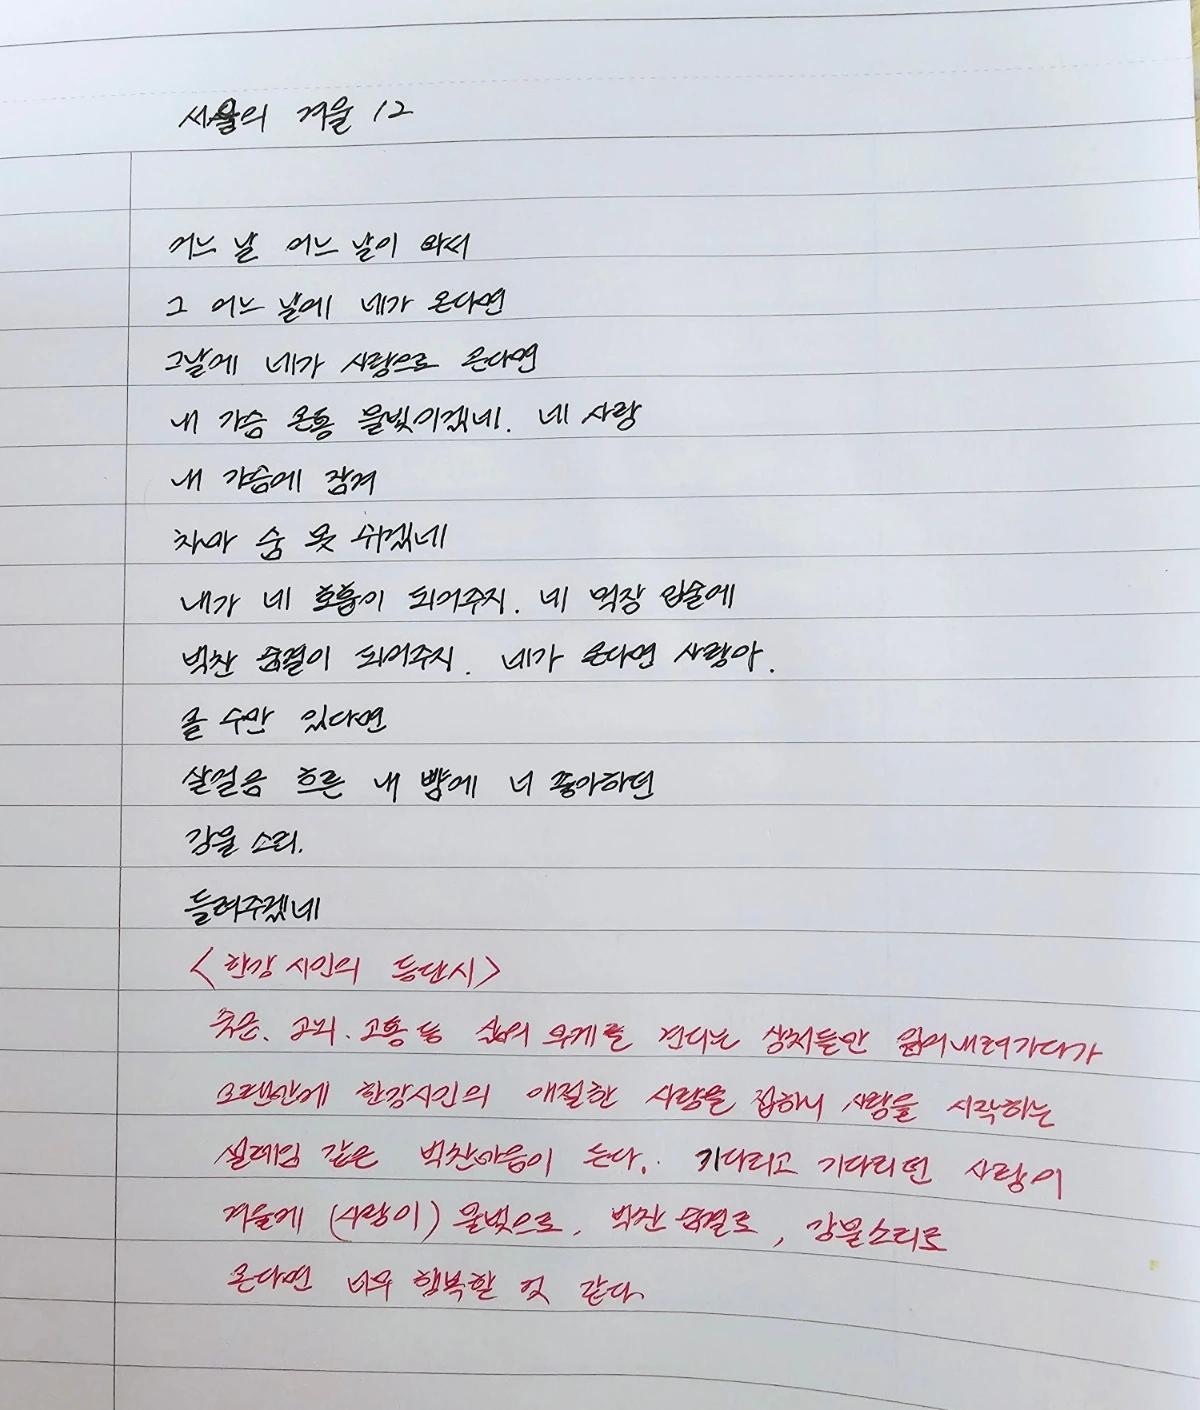 서울의 겨울 12
어느 날 어느 날이 와서
그 어느 날에 네가 온다면
그날에 네가 사랑으로 온다면
내 가슴 온통 물빛이겠네. 네 사랑
내 가슴에 잠겨
차마 숨 못 쉬겠네
내가 네 호흡이 되어주지. 네 먹장 입술에
벅찬 숨결이 되어주지. 네가 온다면 사랑아.
올 수만 있다면
살얼음 흐른 내 뺨에 너 좋아하던
강물 소리.
들려주겠네
<한강 시인의 등단시>
죽은. 고뇌. 고통 등 삶의 무게를 견디는 상처들만 읽어내려가다가
오랜만에 한강시인의 애절한 사랑을 접하니 사랑을 시작하는
설레임 같은 벅찬마음이 든다.. 기다리고 기다리던 사랑이
겨울에 (사랑이) 물빛으로, 벅찬 숨결로, 강물소리로
온다면 너무 행복할 것 같다.